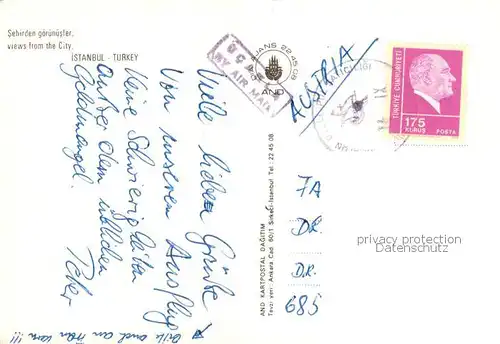 Şehirden görünüşler,
views from the City.
İSTANBUL - TURKEY
UÇAK
BY AIR MAIL
AJANS 22 45 08
AND
AUSTRIA
TÜRKİYE CUMHURİYETİ
175
KURUŞ POSTA
Viele lieben Grüße
von unserem Ausflug
keine Schwierigkeiten
außer dem üblichen
Geldmangel.
Peter
AND KARTPOSTAL DAĞITIM
Tevzi yeri: Ankara Cad. 60/1 Sirkeci-İstanbul Tel: 22 45 08
FA
DR.
DR.
685
privacy protection
Datenschutz